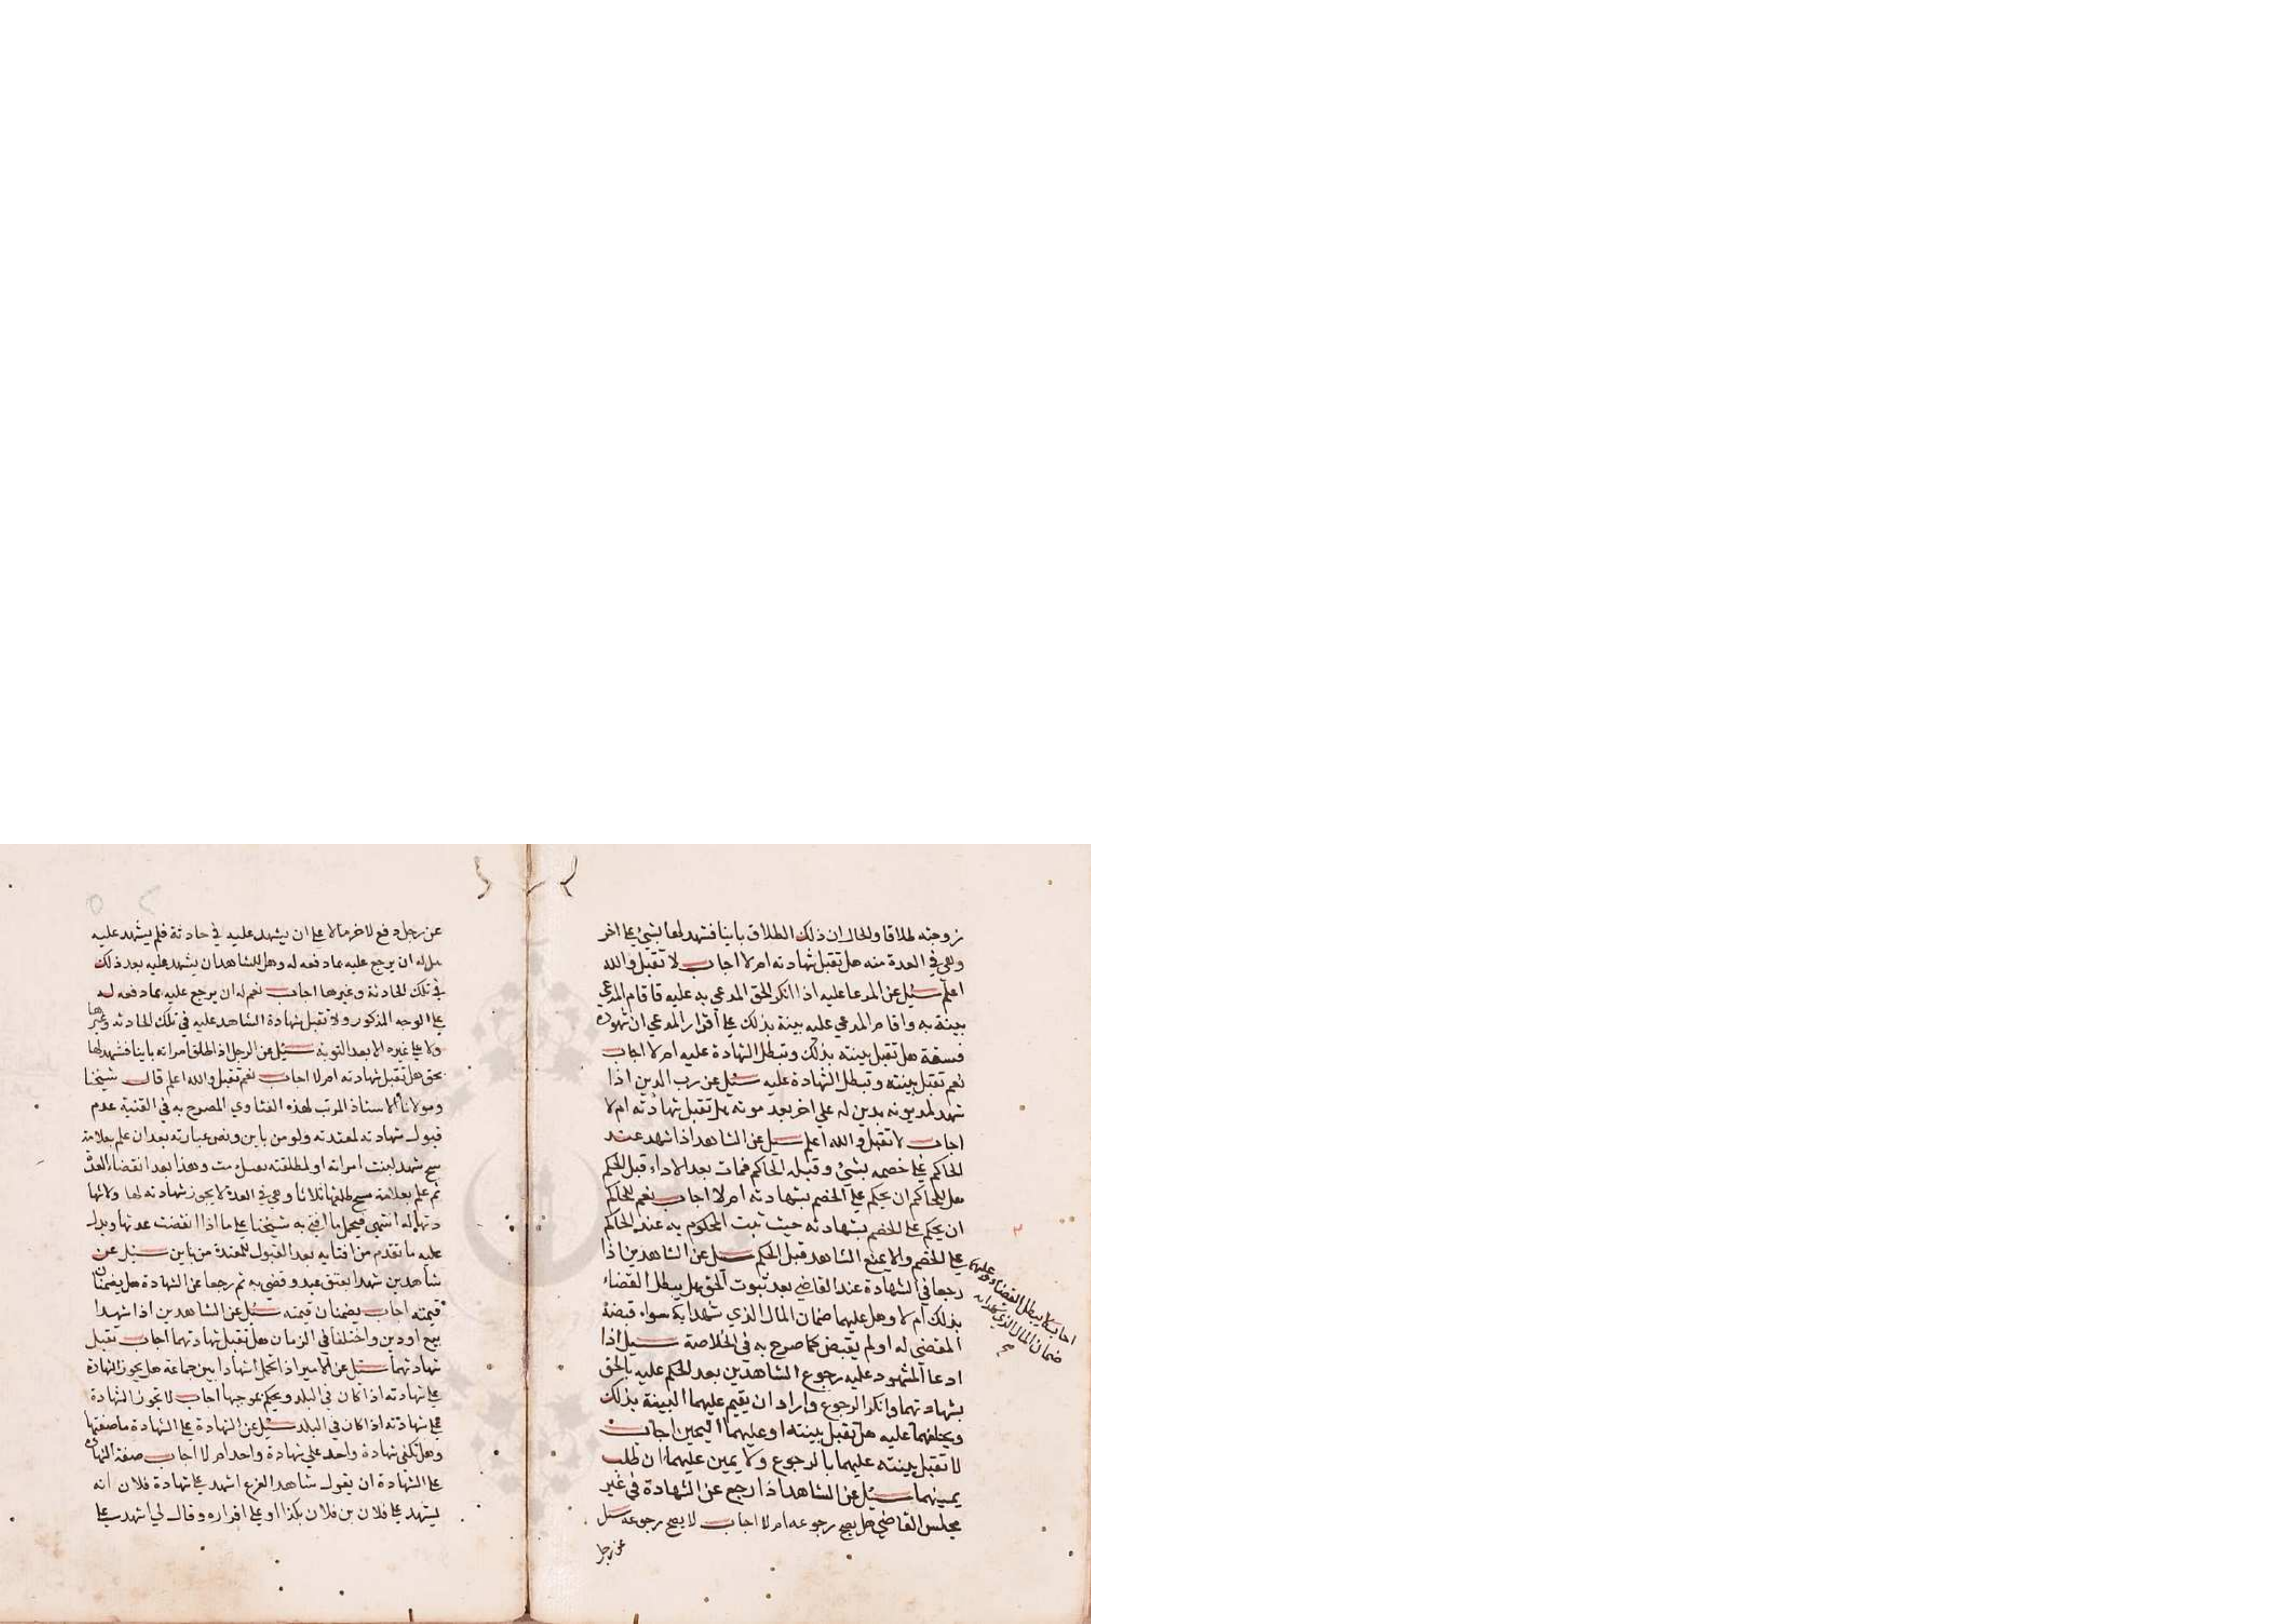 زوجته طلاقا والحال ان ذلك الطلاق باينا فشهد لها بشيء على اخر
وهي في العدة منه هل تقبل شهادته ام لا اجاب لا تقبل والله
اعلم سئل عن المدعا عليه اذا انكر الحق المدعي به عليه فاقام المدعي
بينة به واقام المدعي عليه بينة بذلك على اقرار المدعي ان شهوده
فسقة هل تقبل بينته بذلك وتبطل الشهادة عليه ام لا اجاب
نعم تقبل بينته وتبطل الشهادة عليه سئل عن رب الدين اذا
شهد لمديونه بدين له علي اخر بعد موته هل تقبل شهادته ام لا
اجاب لا تقبل والله اعلم سئل عن الشاهد اذا شهد عند
الحاكم على خصمه بشيء وقبله الحاكم فمات بعد الاداء قبل الحكم
هل للحاكم ان يحكم على الخصم بشهادته ام لا اجاب نعم للحاكم
ان يحكم على الخصم بشهادته حيث ثبت المحكوم به عند الحاكم
على الخصم والا يمنع الشاهد قبل الحكم سئل عن الشاهدين اذا
رجعا في الشهادة عند القاضي بعد ثبوت الحق هل يبطل القضاء
بذلك ام لا وهل عليهما ضمان المال الذي شهدا به سواء قبضة
المقضي له او لم يقبض كما صرح به في الخلاصة سئل اذا
ادعا المشهود عليه رجوع الشاهدين بعد الحكم عليه بالحق
بشهادتهما وانكر الرجوع واراد ان يقيم عليهما البينة بذلك
ويحلفهما عليه هل تقبل بينته او عليهما اليمين اجاب
لا تقبل بينته عليهما بالرجوع ولا يمين عليهما ان طلب
يمينهما سئل عن الشاهد اذا رجع عن الشهادة في غير
مجلس القاضي هل يصح رجوعه ام لا اجاب لا يصح رجوعه سئل
عن رجل
اجاب لا يبطل القضاء وعليهما
ضمان المال الذي شهدا به
صح
عن رجل دفع لاخر مالا على ان يشهد عليه في حادثة فلم يشهد عليه
هل له ان يرجع عليه بما دفعه له وهل للشاهد ان يشهد عليه بعد ذلك
في تلك الحادثة وغيرها اجاب نعم له ان يرجع عليه بما دفعه له
على الوجه المذكور ولا تقبل شهادة الشاهد عليه في تلك الحادثه وغيرها
ولا على غيره الا بعد التوبة سئل عن الرجل اذا طلق امراته باينا فشهد لها
بحق هل تقبل شهادته ام لا اجاب نعم تقبل والله اعلم قال شيخنا
ومولانا الاستاذ المرتب لهذه الفتاوي المصرح به في القنية عدم
قبول شهادته لمعتدته ولو من باين ونص عبارته بعد ان علم بعلامة
شهد لبنت امراته او لمطلقته وهذا بعد انقضاء العدة
ثم علم بعلامة طلقها ثلاثا وهي في العدة لا يجوز شهادته لها ولا شها
دتها له انتهى فيحمل ما افتي به شيخنا على ما اذا انقضت عدتها ويدل
عليه ما تقدم من افتايه بعد القبول للمعتدة من باين سئل عن
شاهدين شهدا بعتق عبد وقضي به ثم رجعا عن الشهادة هل يضمنان
قيمته اجاب يضمنان قيمته سئل عن الشاهدين اذا شهدا
ببيع او دين واختلفا في الزمان هل تقبل شهادتهما اجاب تقبل
شهادتهما سئل عن الامير اذا تحمل اشهادا بين جماعة هل يجوز الشهادة
على شهادته اذا كان في البلد ويحكم بموجبها اجاب لا تجوز الشهادة
على شهادته اذا كان في البلد سئل عن الشهادة على الشهادة ما صفتها
وهل تكفي شهادة واحد علي شهادة واحد ام لا اجاب صفة الشهادة
على الشهادة ان يقول شاهد الفرع اشهد على شهادة فلان انه
يشهد على فلان بن فلان بكذا او على اقراره وقال لي اشهد على